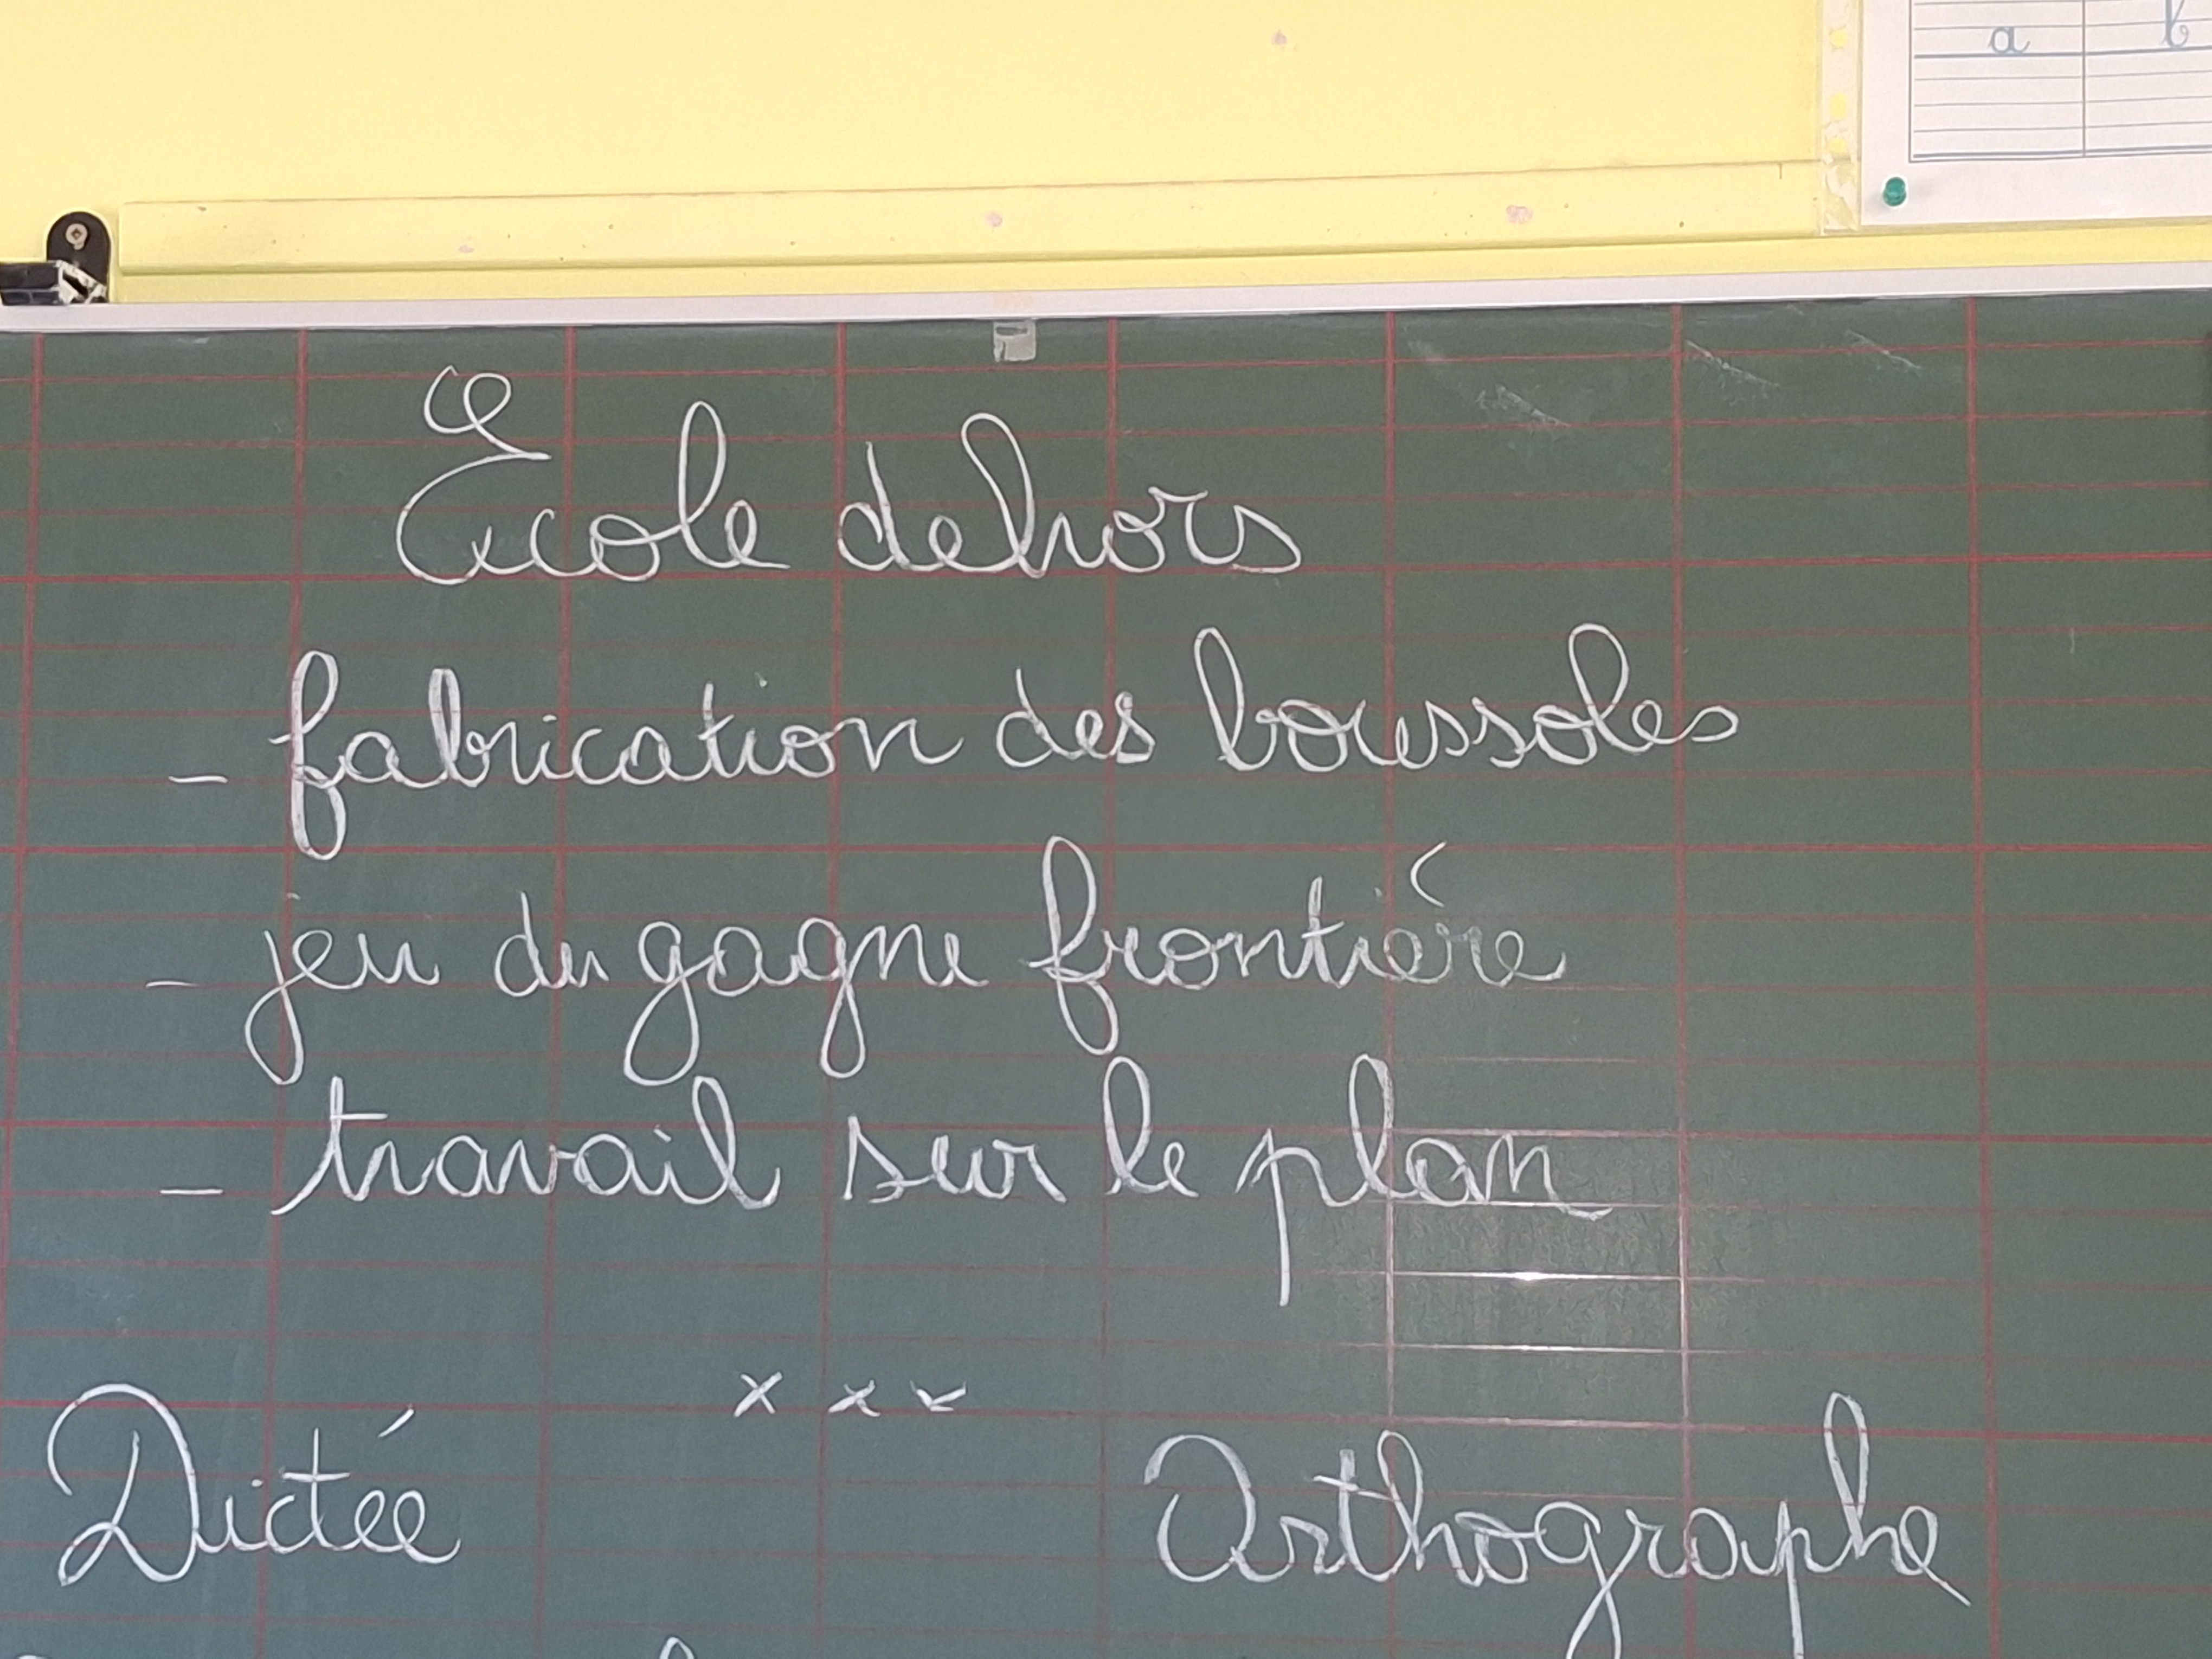 a b
École dehors
- fabrication des boussoles
- jeu du gagne frontière
- travail sur le plan
x x x
Dictée Orthographe